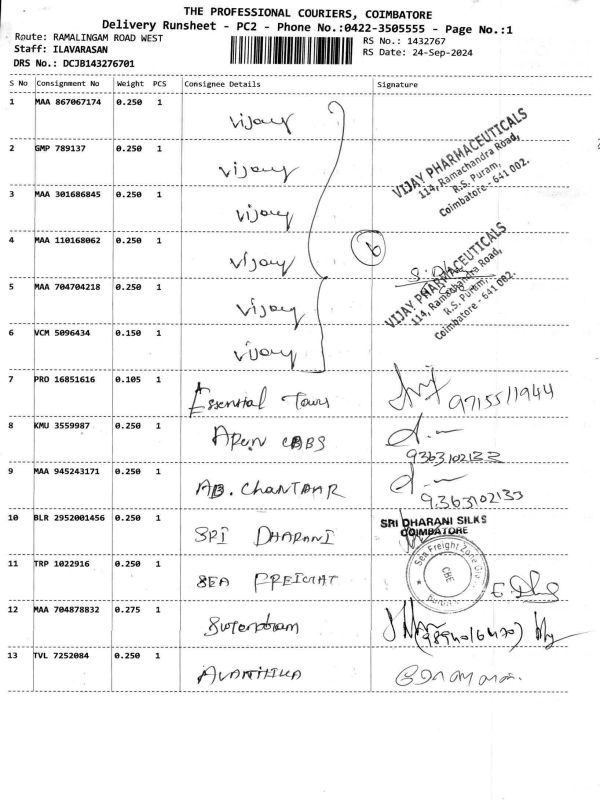 THE PROFESSIONAL COURIERS, COIMBATORE
Delivery Runsheet - PC2 - Phone No.:0422-3505555 - Page No.:1
Route: RAMALINGAM ROAD WEST
RS No.: 1432767
Staff: ILAVARASAN
RS Date: 24-Sep-2024
DRS No.: DCJB143276701
S No Consignment No Weight PCS Consignee Details Signature
1 MAA 867067174 0.250 1 vijay
VIJAY PHARMACEUTICALS
114, Ramachandra Road,
R.S. Puram,
Coimbatore - 641 002.
2 GMP 789137 0.250 1 vijay
3 MAA 301686845 0.250 1 vijay
4 MAA 110168062 0.250 1 vijay
6
VIJAY PHARMACEUTICALS
114, Ramachandra Road,
R.S. Puram,
Coimbatore - 641 002.
5 MAA 704704218 0.250 1 vijay
6 VCM 5096434 0.150 1 vijay
7 PRO 16851616 0.105 1 Essential Tours 9715511944
8 KMU 3559987 0.250 1 Apen CBBS
9363102133
9 MAA 945243171 0.250 1 AB. Chantbar
9363102133
10 BLR 2952001456 0.250 1 SRI DHARANI
SRI DHARANI SILKS
COIMBATORE
11 TRP 1022916 0.250 1 SEA FREIGHT
Sea Freight Zone
CBE
12 MAA 704878832 0.275 1
13 TVL 7252084 0.250 1 AVANTHIKA